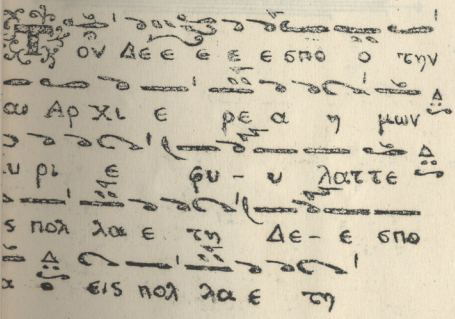 Τον Δε ε ε ε ε σπο ο την
αι Αρ χι ε ρε α η μων
υ ρι ε φυ - υ λαττε
ις πολ λα ε τη Δε - ε σπο
α εις πολ λα ε τη